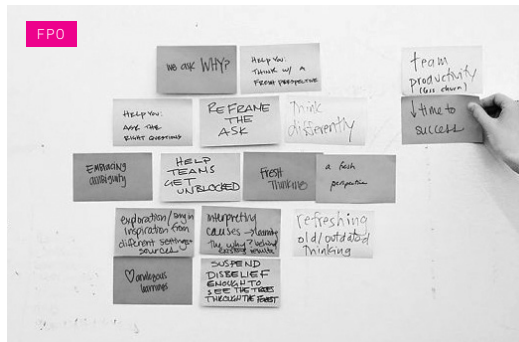 FPO
we ask WHY?
HELP YOU:
THINK W/ A
FRESH PERSPECTIVE
team
productivity
(less churn)
HELP YOU:
ASK THE
RIGHT QUESTIONS
REFRAME
THE
ASK
Think
differently
↓ time to
success
EMBRACING
ambiguity
HELP
TEAMS
GET
UNBLOCKED
FRESH
THINKING
a fresh
perspective
exploration/
inspiration from
different settings
sources
interpreting
causes → learning
the why? behind
existing results
refreshing
old/outdated
thinking
♡ analogous
learnings
SUSPEND
DISBELIEF
ENOUGH TO
SEE THE TREES
THROUGH THE FOREST